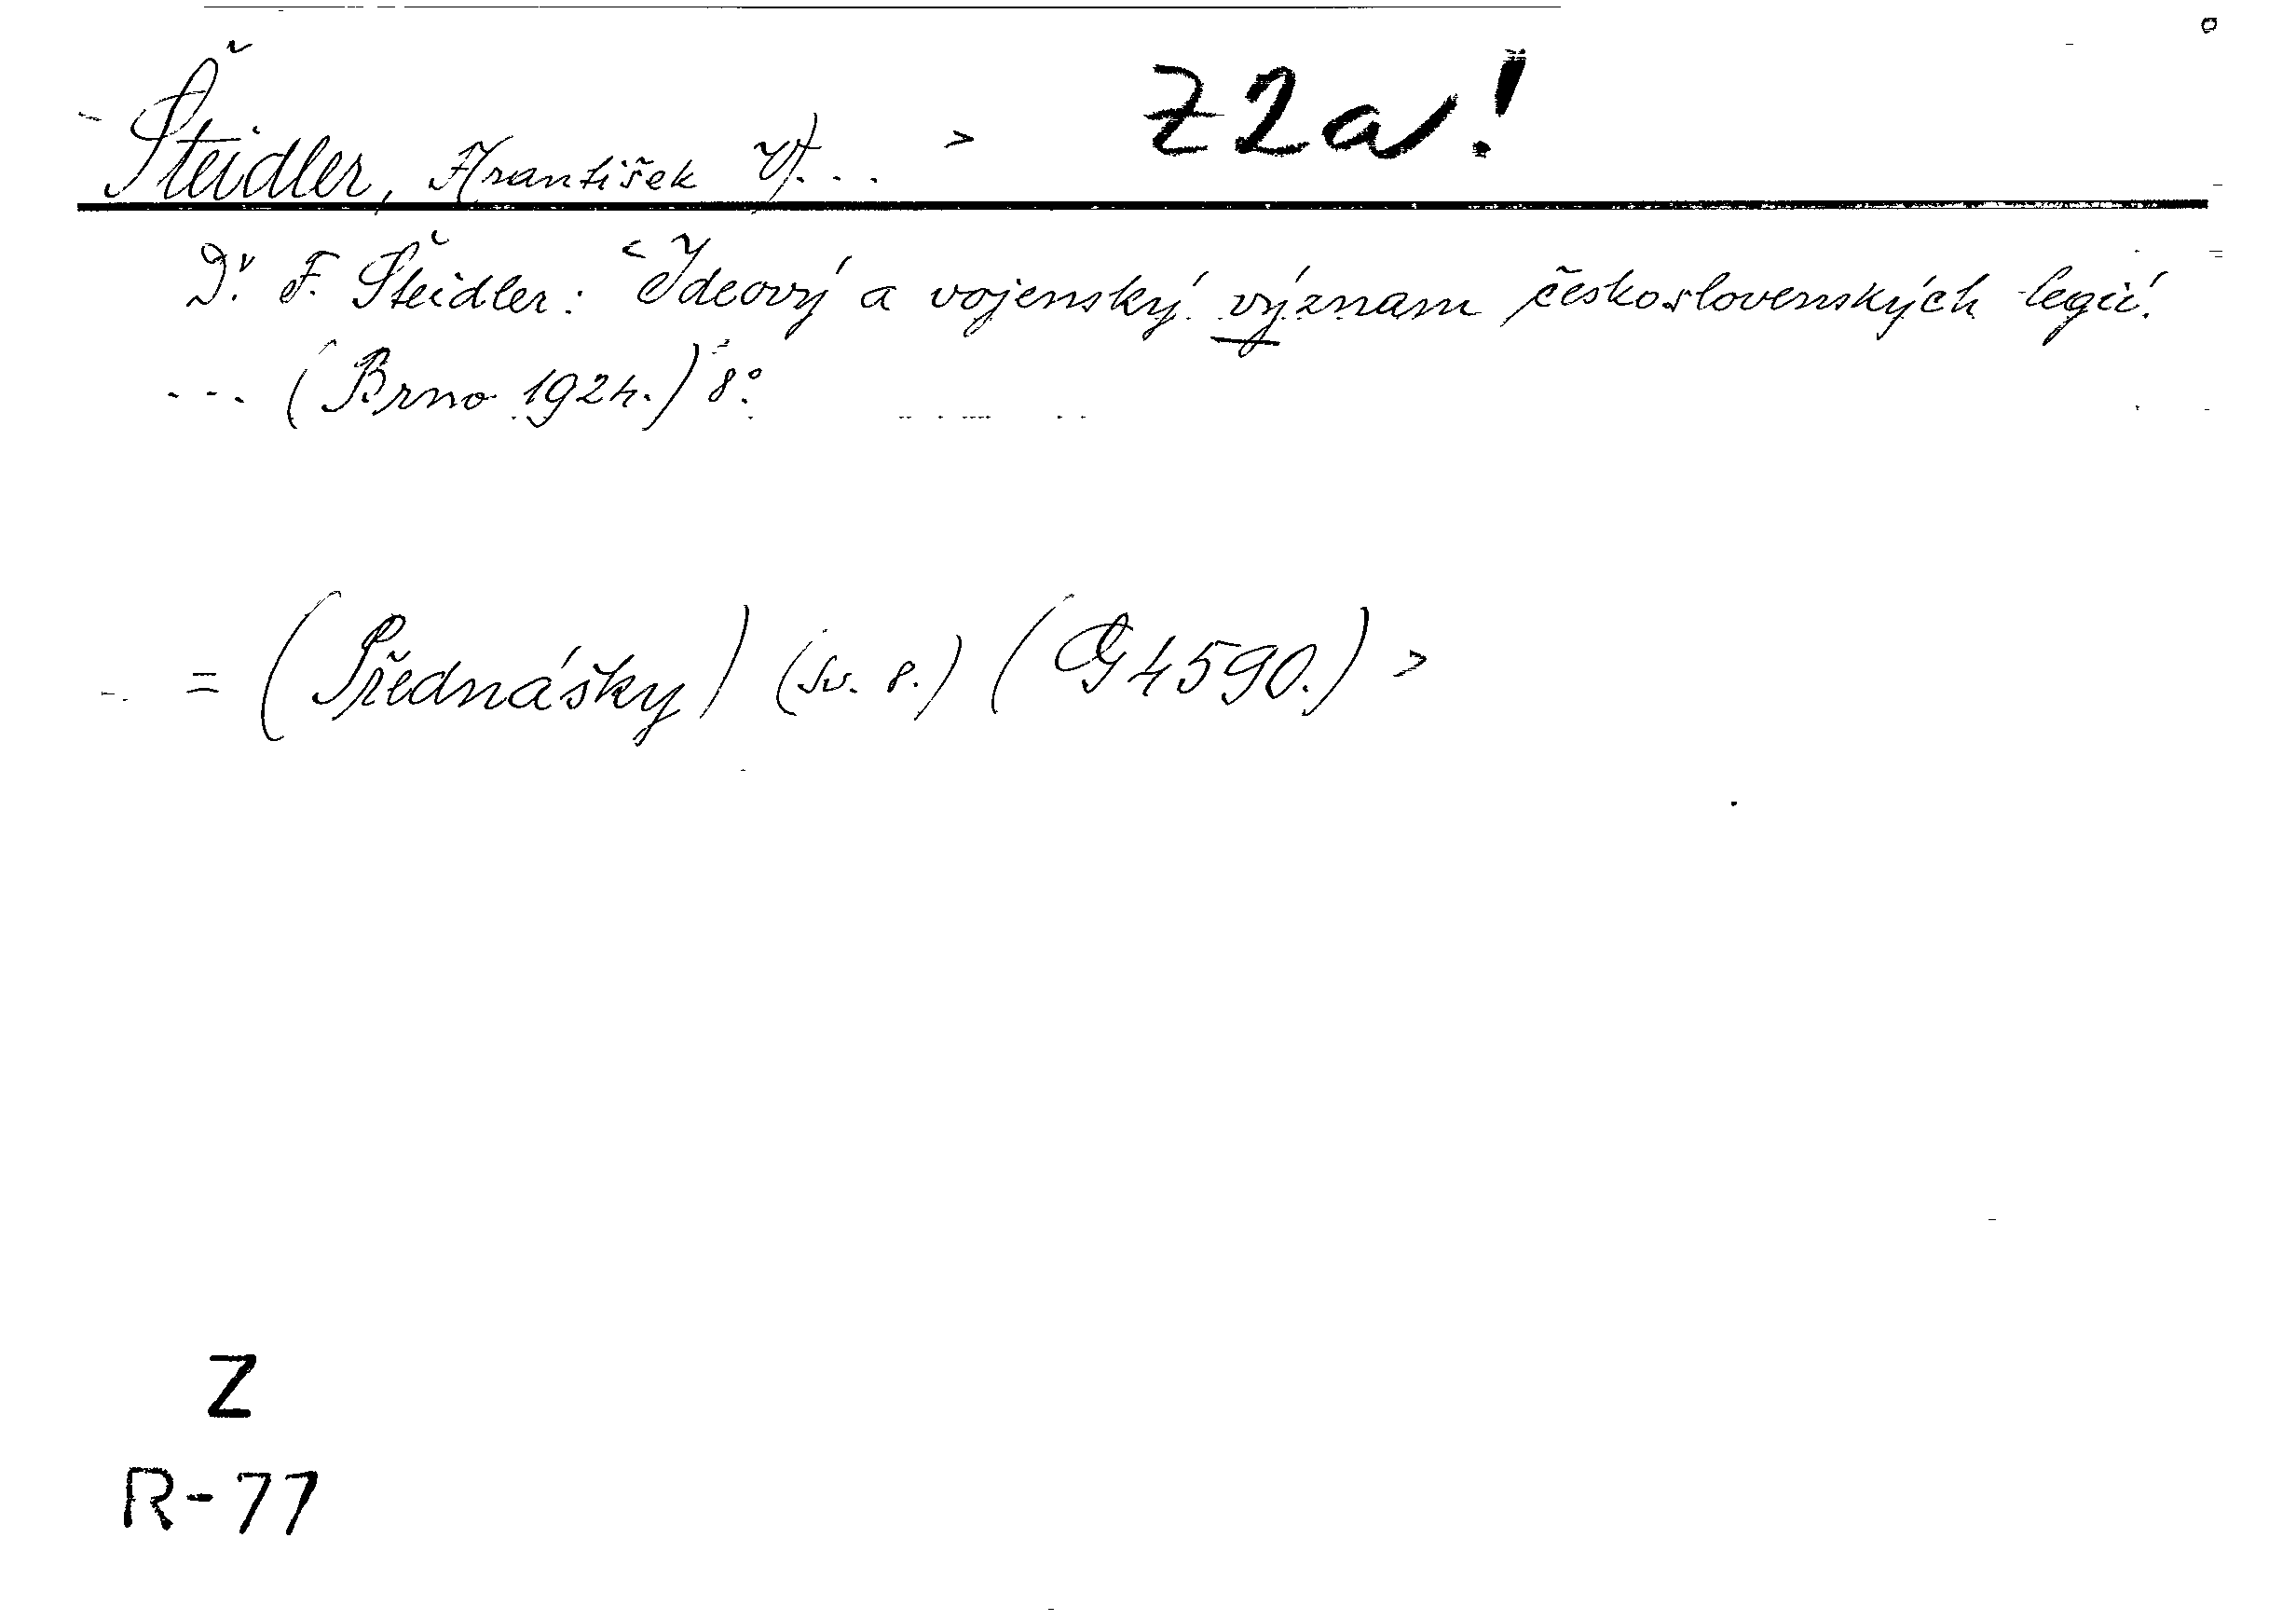 Šteidler, František V. . . . > Z2a!
Dr. F. Šteidler: < Ideový a vojenský význam československých legií.
. . . (Brno 1924.) 8°.
= (Přednášky) (Sv. 8.) (G 4590.) >
Z
R-77